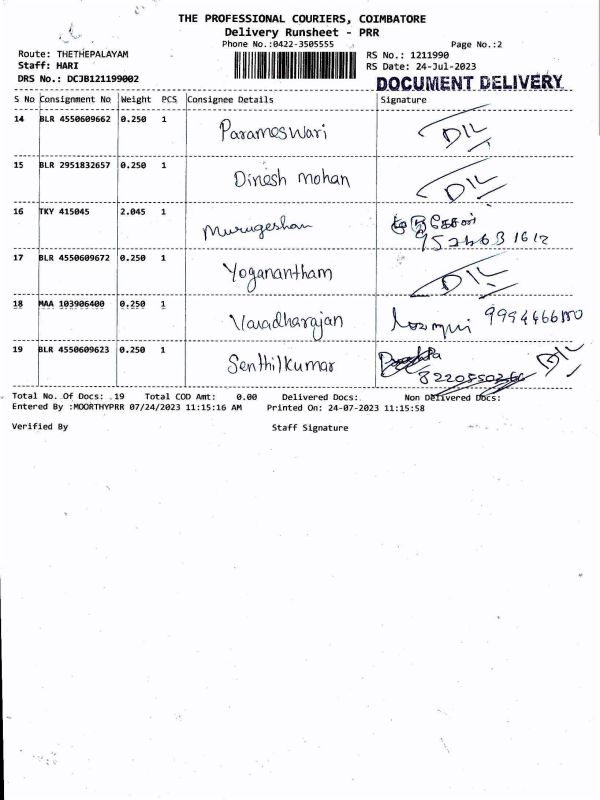 THE PROFESSIONAL COURIERS, COIMBATORE
Delivery Runsheet - PRR
Phone No.:0422-3505555 Page No.:2
Route: THETHEPALAYAM RS No.: 1211990
Staff: HARI RS Date: 24-Jul-2023
DRS No.: DCJB121199002 DOCUMENT DELIVERY
S No Consignment No Weight PCS Consignee Details Signature
14 BLR 4550609662 0.250 1 Parameswari D/L
15 BLR 2951832657 0.250 1 Dinesh mohan D/L
16 TKY 415045 2.045 1 Murugeshan
17 BLR 4550609672 0.250 1 Yoganantham D/L
18 MAA 103906400 0.250 1 Varadharajan
19 BLR 4550609623 0.250 1 Senthilkumar D/L
Total No. Of Docs: 19 Total COD Amt: 0.00 Delivered Docs: Non Delivered Docs:
Entered By :MOORTHYPRR 07/24/2023 11:15:16 AM Printed On: 24-07-2023 11:15:58
Verified By Staff Signature